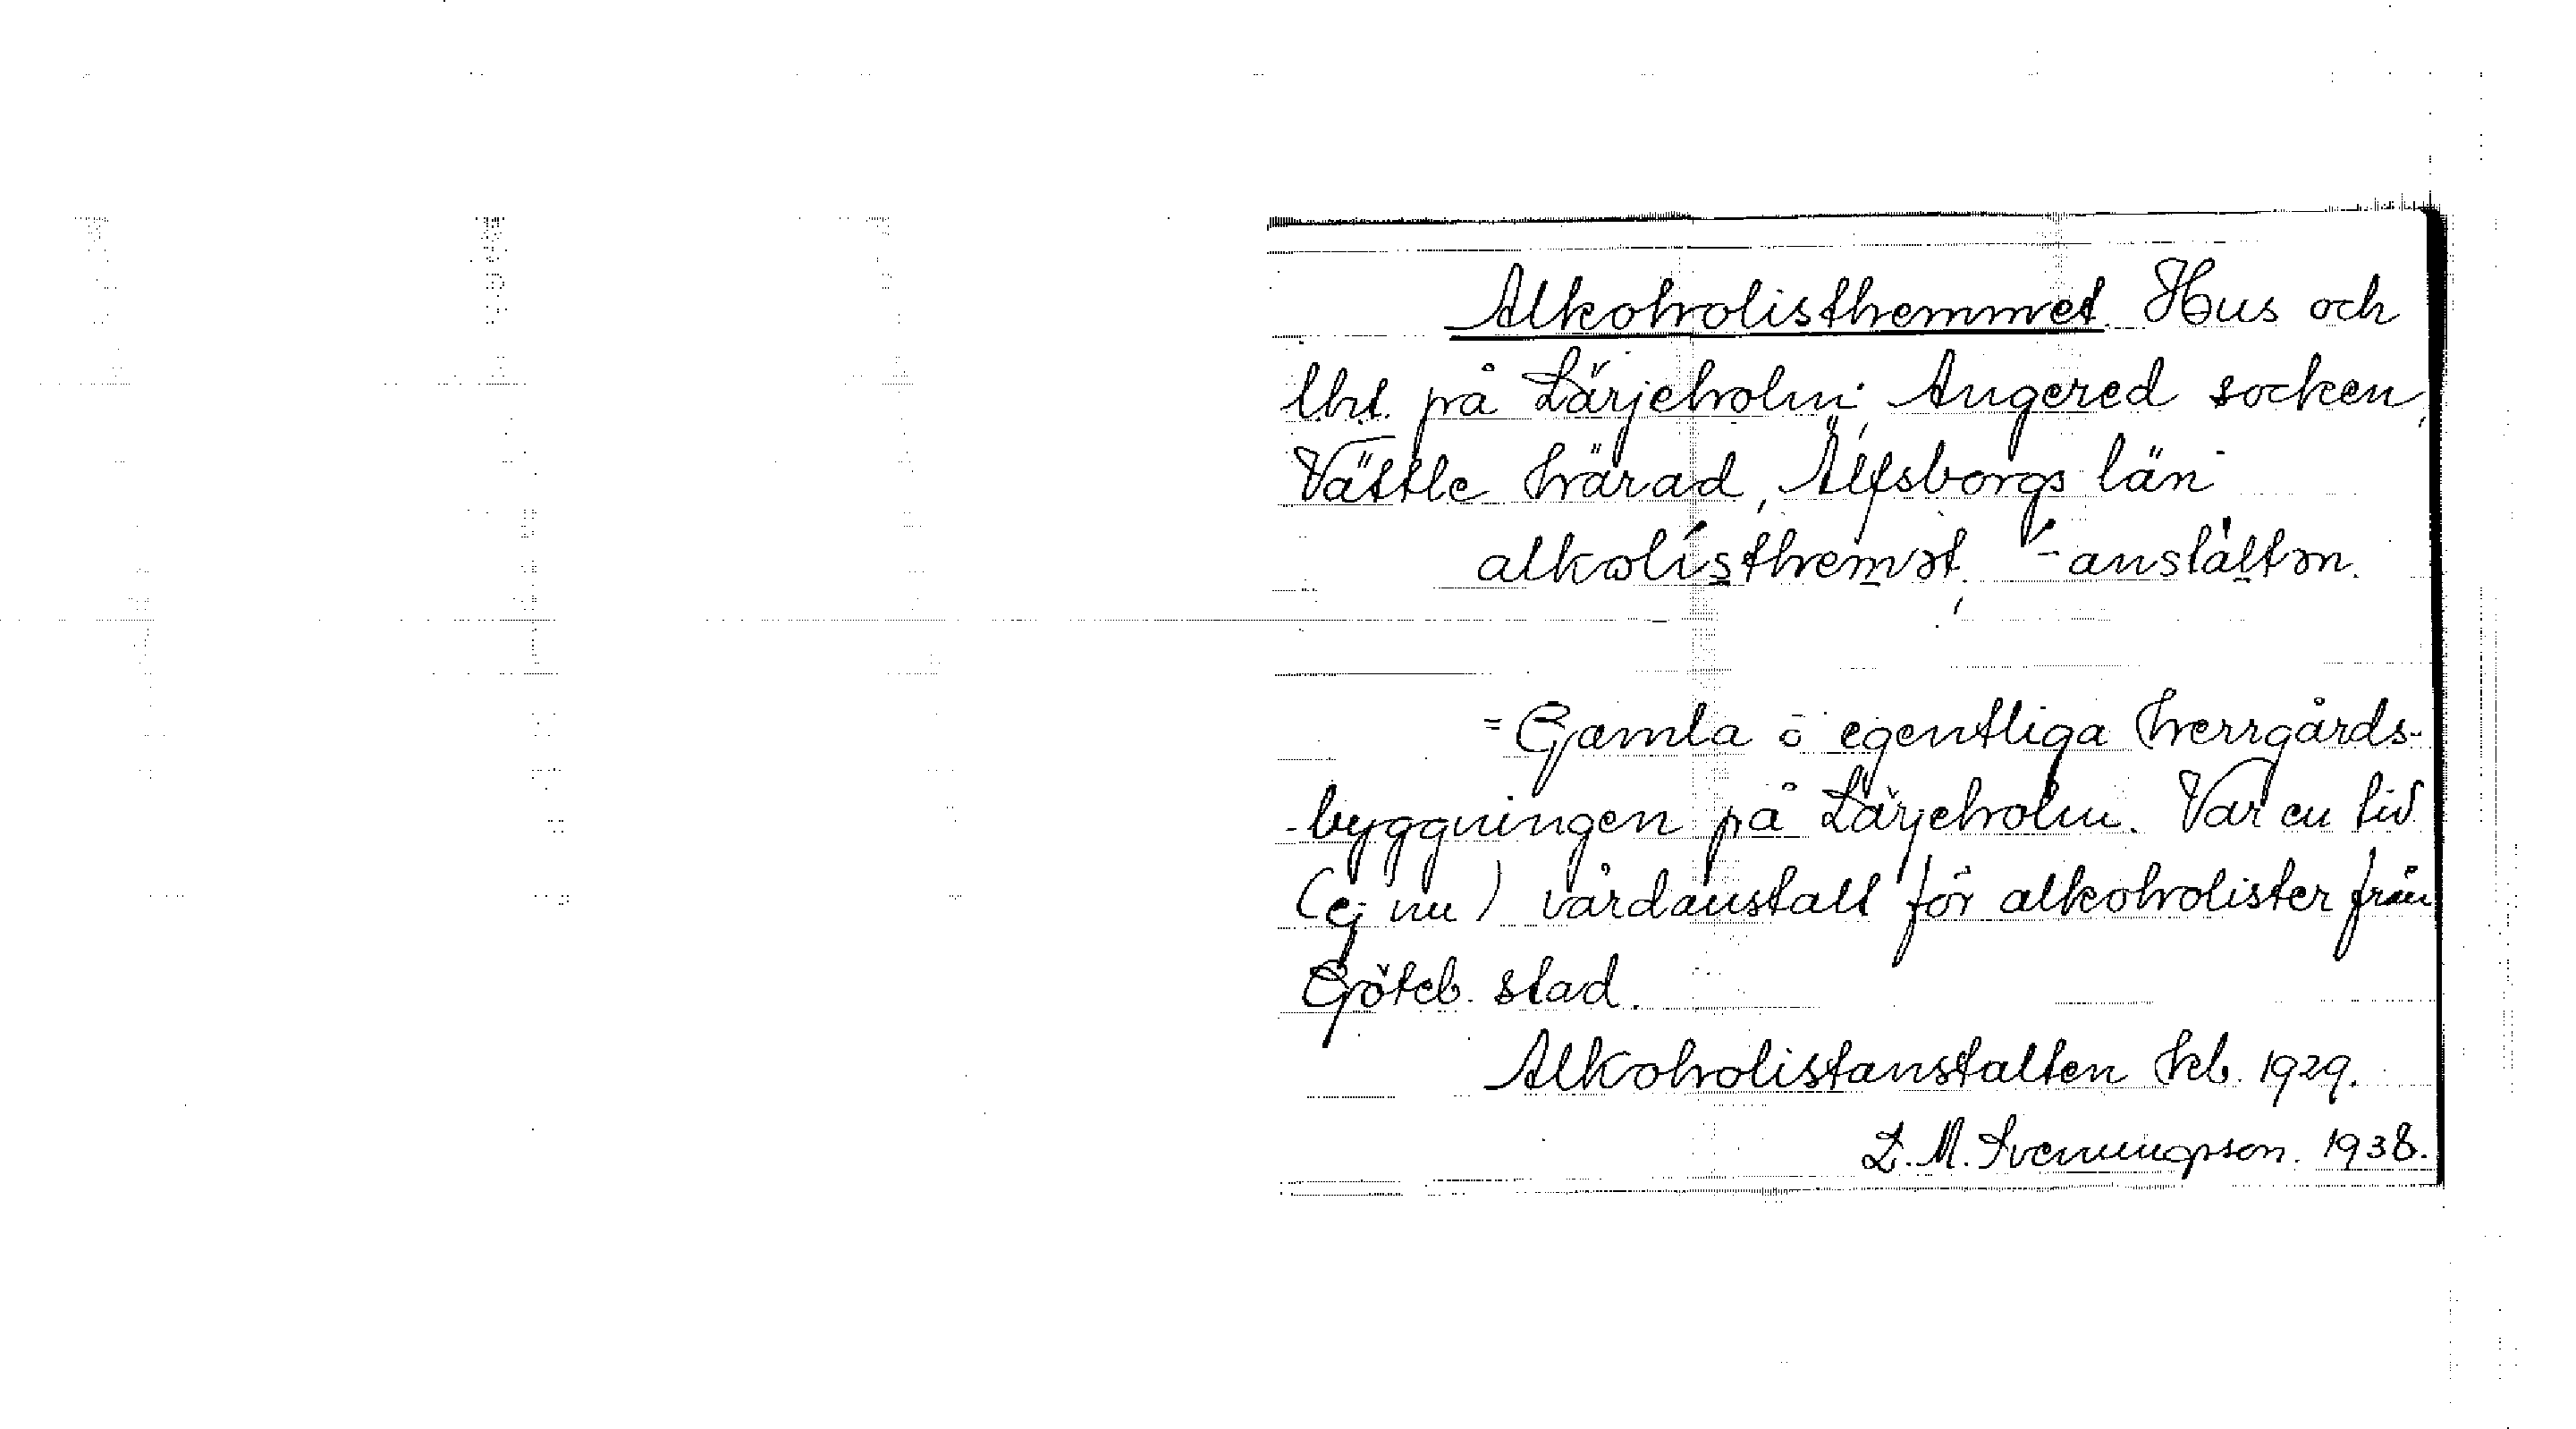 Alkoholisthemmet. Hus och
lht. på Lärjeholm, Angered socken,
Vättle härad, Älfsborgs län
alkolísthemət, -anstàltən.
= Gamla o egentliga herrgårds-
-byggningen på Lärjeholm. Var en tid
(ej nu) vårdanstalt för alkoholister från
Göteb. stad.
Alkoholistanstalten hd. 1929.
L. M. Svenungsson. 1938.